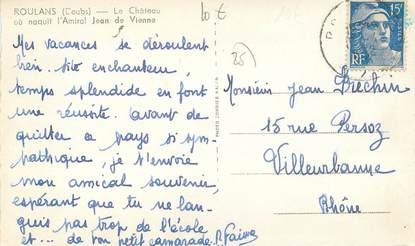 ROULANS (Doubs) — Le Château
où naquit l'Amiral Jean de Vienne
10 €
(25)
15F
RF
Mes vacances se déroulent
bien. Site enchanteur,
temps splendide en font
une réussite. Avant de
quitter ce pays si sym-
pathique, je t'envoie
mon amical souvenir,
espérant que tu ne lan-
guis pas trop de l'école
et ... de ton petit camarade.
Monsieur Jean Bréchin
15 rue Persoz
Villeurbanne
Rhône